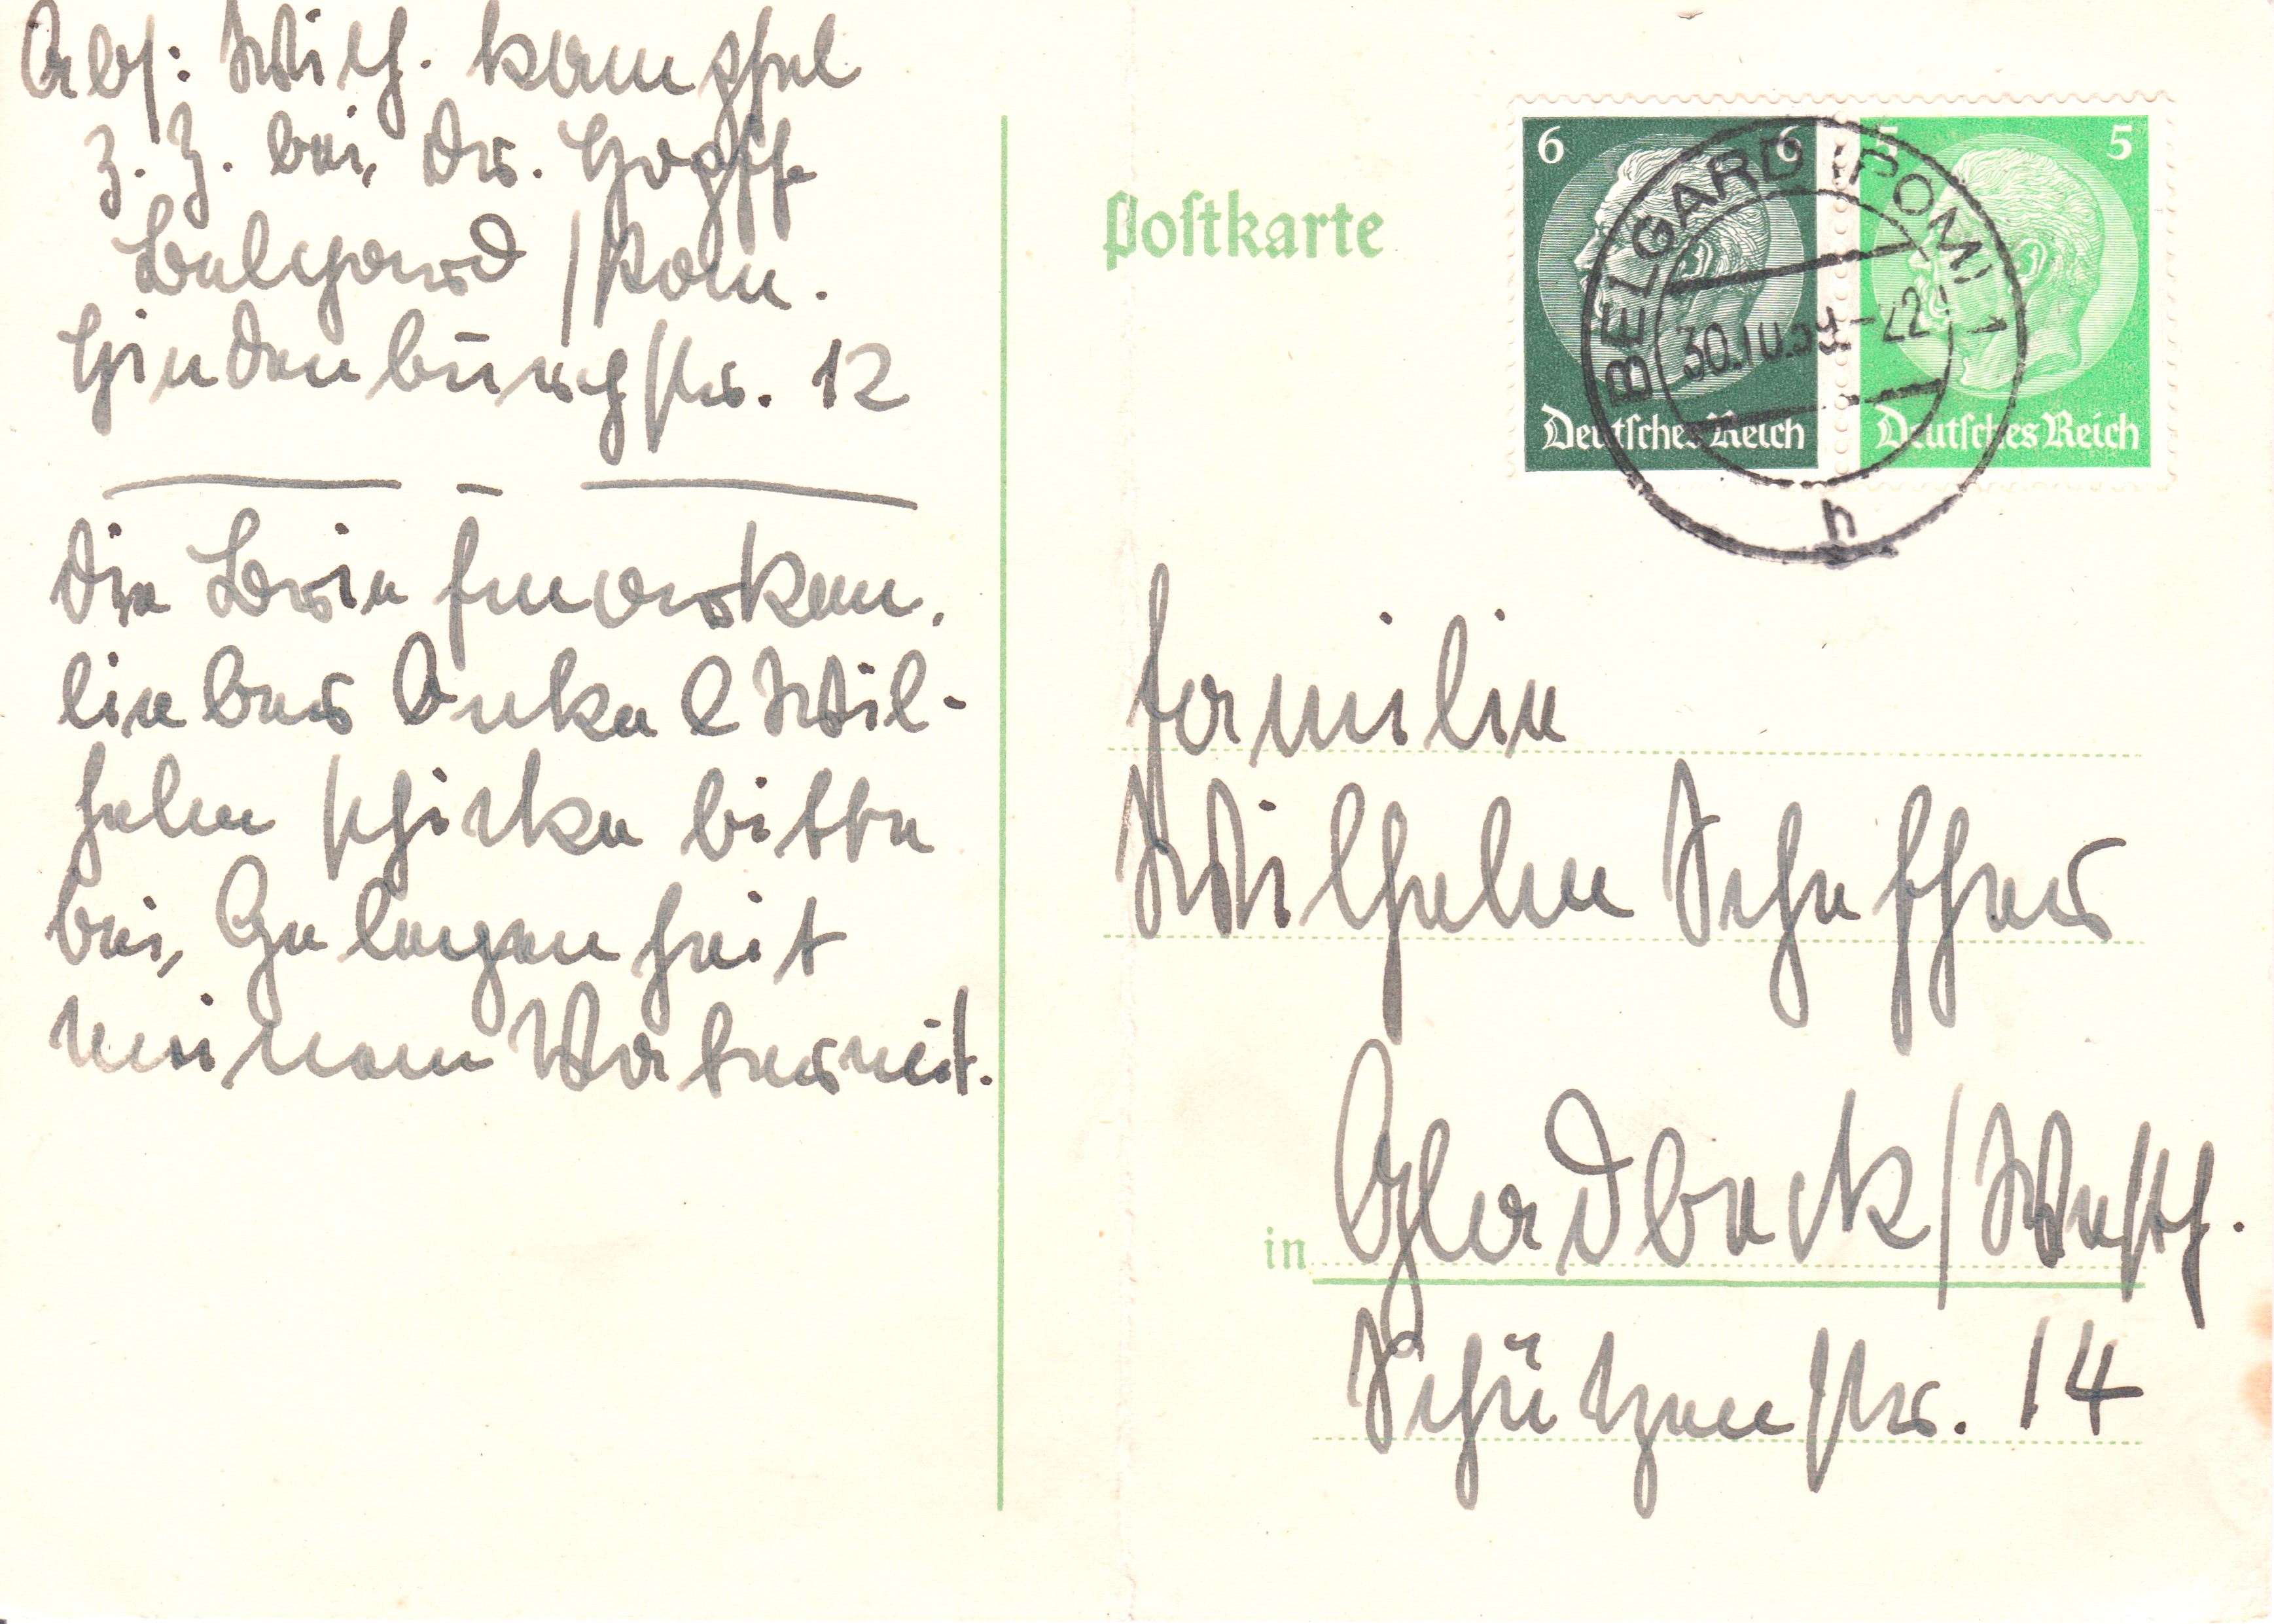 Abs: Wilh.
z. Z. bei Dr. Hoppe
Belgard/Pom.
Hindenburgstr. 12
Die Briefmarken,
lieber Onkel Wil-
helm schicke bitte
bei Gelegenheit
meinem Vater mit.
Postkarte
6 6 5 5
Deutsches Reich Deutsches Reich
BELGARD (POM) 1
30.10.39.-22
h
Familie
Wilhelm
in Gladbeck/Westf.
Schützenstr. 14